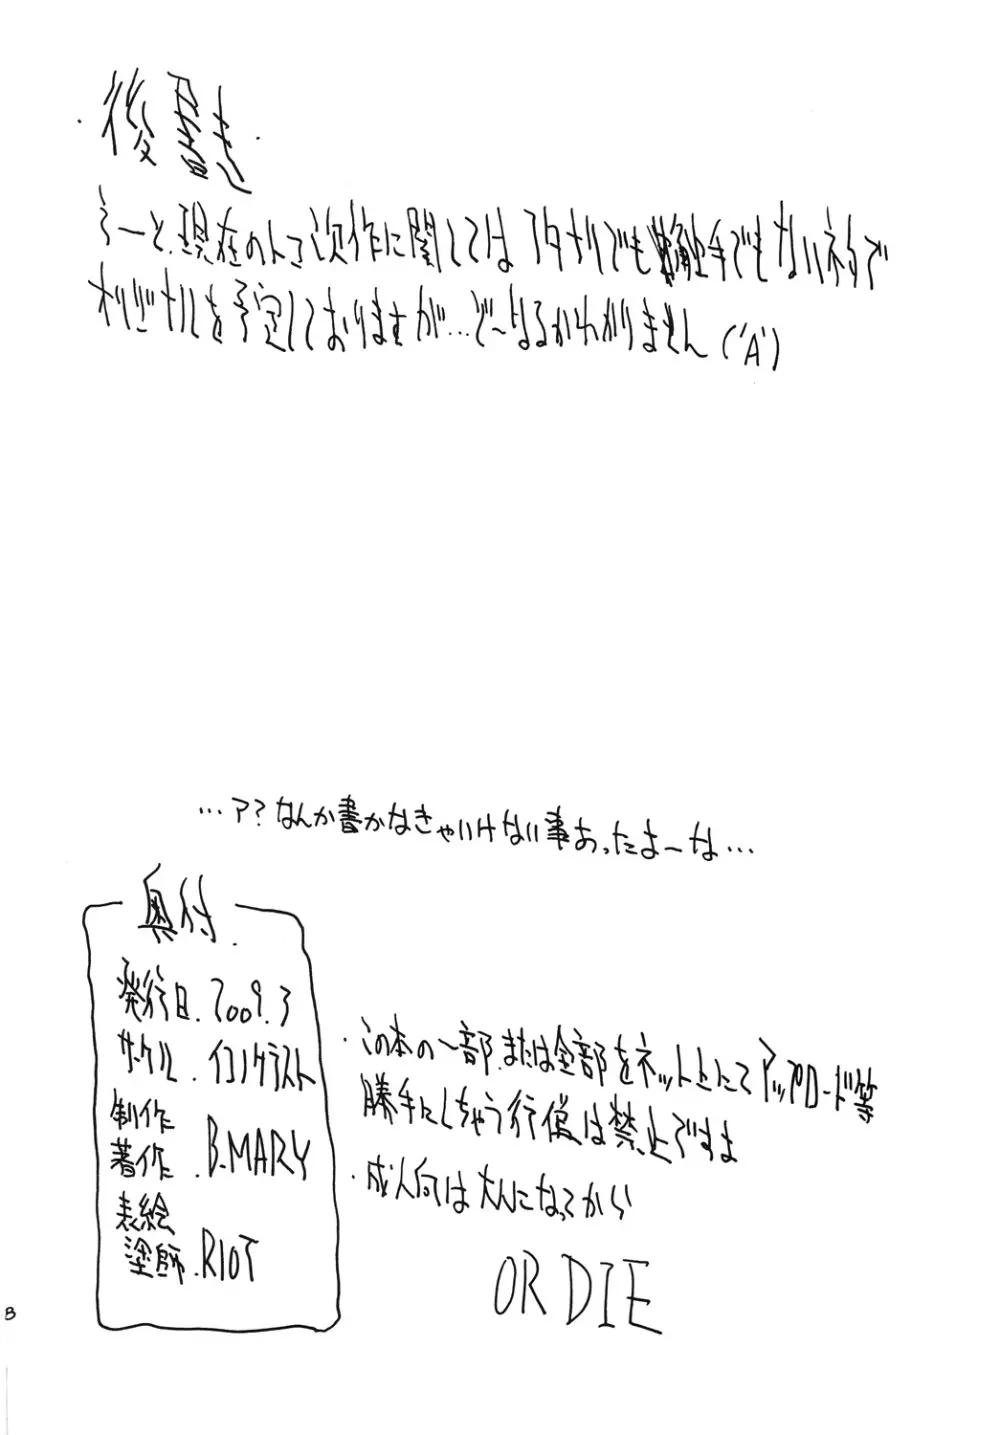 ・後書き・
うーと、現在のトコ次作に関してはフタナリでも触手でもないネタで
オリジナルを予定しておりますが…ど〜なるかわかりません('A')
…ア?なんか書かなきゃいけない事あったよーな…
奥付.
発行日.2009.3
サークル.イコノクラスト
制作
著作.B.MARY
表絵
塗師.RIOT
・この本の一部.または全部をネット上にてアップロード等
勝手にしちゃう行為は禁止ですよ
・成人向は大人になってから
OR DIE
8